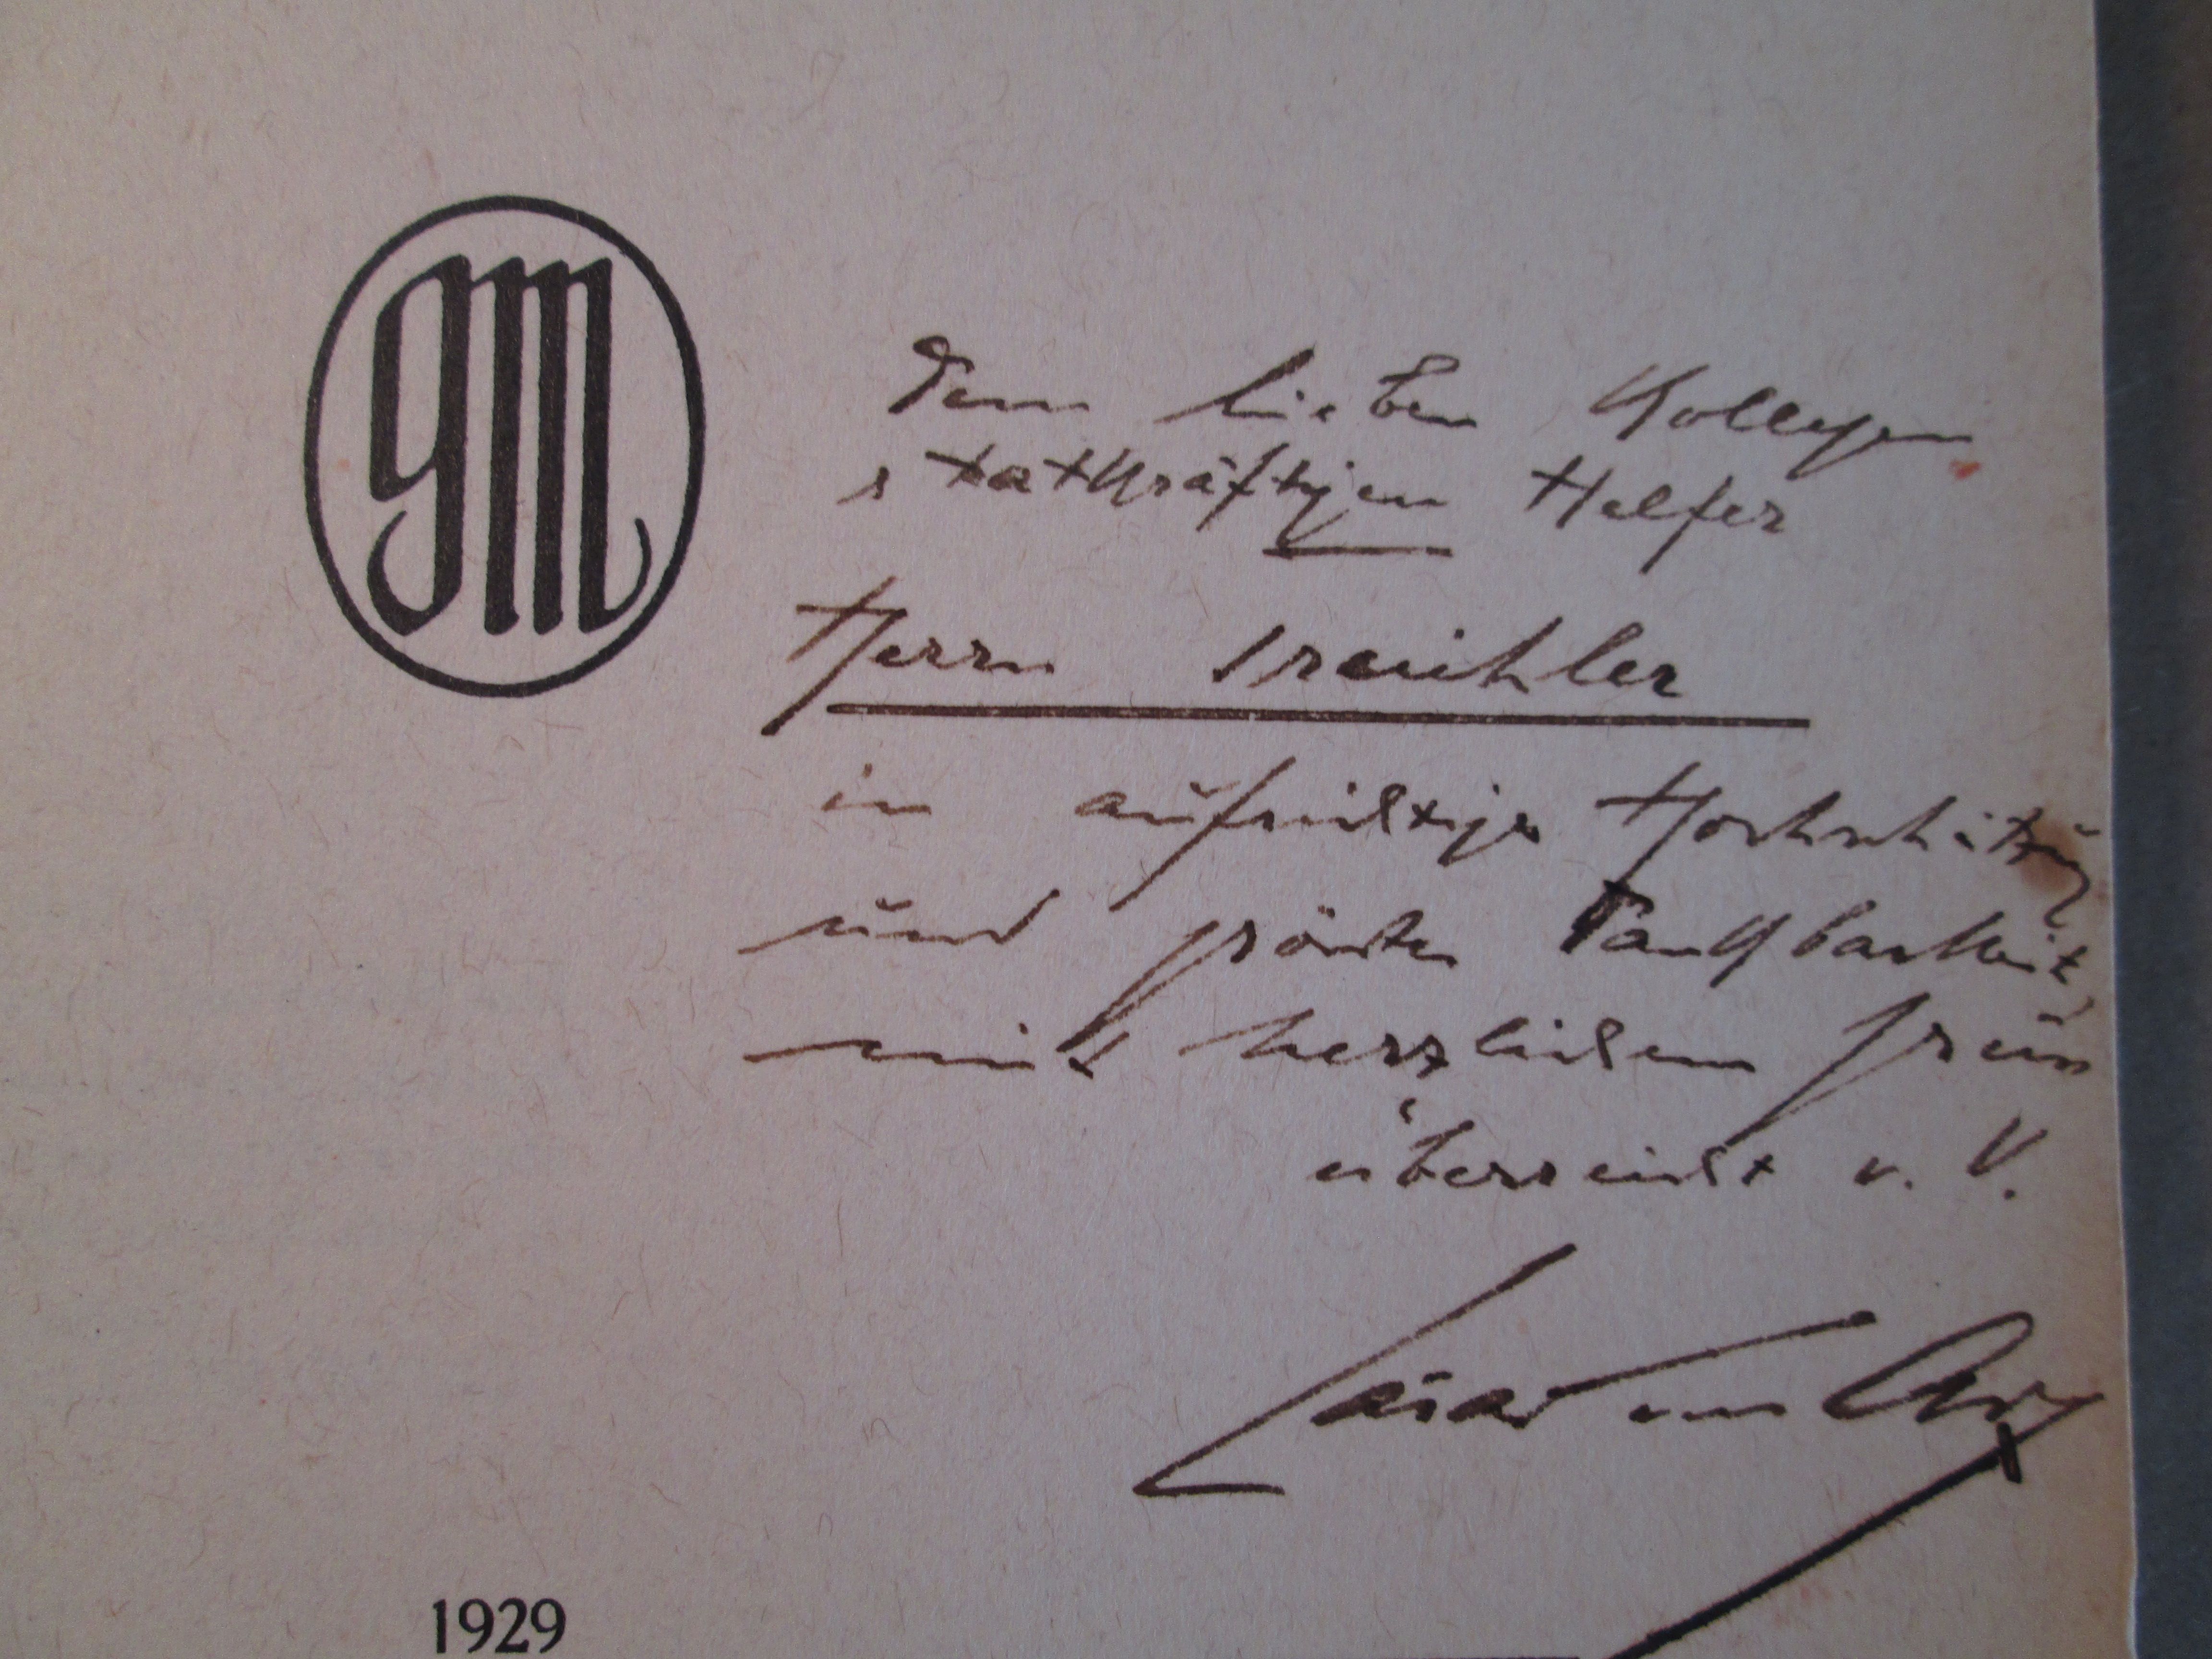 GM
Dem lieben Kollegen
& tatkräftigen Helfer
Herrn
in aufrichtiger Hochschätzung
und größter Dankbarkeit,
mit herzlichem Gruß
überreicht v. V.
Cäsar von Arx
1929